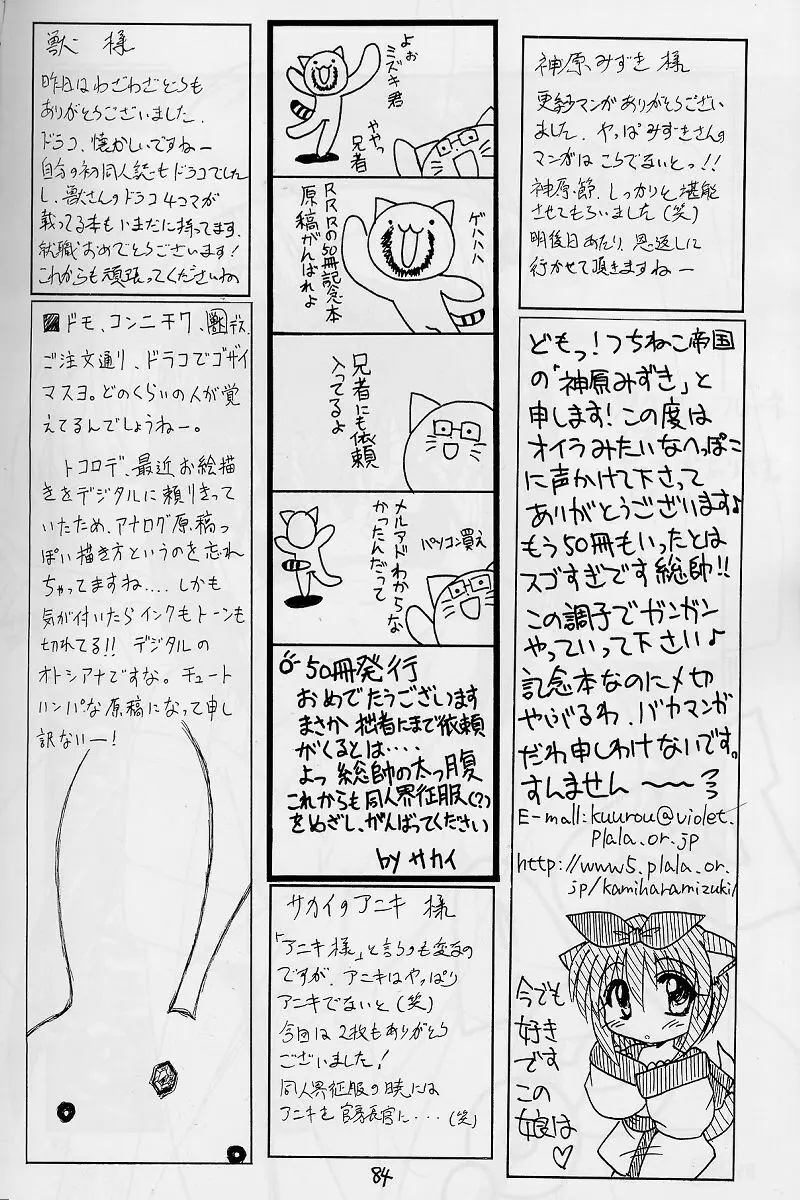 神原みずき 様
更紗マンガありがとうござい
ました。やっぱみずきさんの
マンガはこうでないとっ!!
神原節、しっかりと堪能
させてもらいました(笑)
明後日あたり、恩返しに
行かせて頂きますねー
どもっ!つちねこ帝国
の「神原みずき」と
申します!この度は
オイラみたいなへっぽこ
に声かけて下さって
ありがとうございます♪
もう50冊もいったとは
スゴすぎです総帥!!
この調子でガンガン
やっていって下さい♪
記念本なのに〆切
やぶるわ、バカマンガ
だわ申しわけないです。
すんません〜〜
E-mall:kuurou@violet.
plala.or.jp
http://www5.plala.or.
jp/kamiharamizuki/
今でも
好き
です
この
娘は
♡
よぉ
ミズキ君
ややっ
兄者
ゲハハハ
RRRの50冊記念本
原稿がんばれよ
兄者にも依頼
入ってるよ
メルアドわからな
かったんだって
パソコン買え
50冊発行
おめでたうございます
まさか拙者にまで依頼
がくるとは‥‥
よっ 総帥の太っ腹
これからも同人界征服(?)
をめざし、がんばってください
by サカイ
サカイのアニキ 様
「アニキ様」と言うのも変なの
ですが、アニキはやっぱり
アニキでないと(笑)
今回は2枚もありがとう
ございました!
同人界征服の暁には
アニキを官房長官に・・・(笑)
獣 様
昨日はわざわざどうも
ありがとうございました。
ドラコ、懐かしいですねー
自分の初同人誌もドラコでした
し、獣さんのドラコ4コマが
載ってる本もいまだに持ってます。
就職おめでとうございます!
これからも頑張ってくださいね
ドモ、コンニチワ、獣デス。
ご注文通り、ドラコでゴザイ
マスヨ。どのくらいの人が覚
えてるんでしょうねー。
トコロデ、最近お絵描
きをデジタルに頼りきって
いたため、アナログ原稿っ
ぽい描き方というのを忘れ
ちゃってますね‥‥しかも
気が付いたらインクもトーンも
切れてる!! デジタルの
オトシアナですな。チュート
ハンパな原稿になって申し
訳ないー!
84